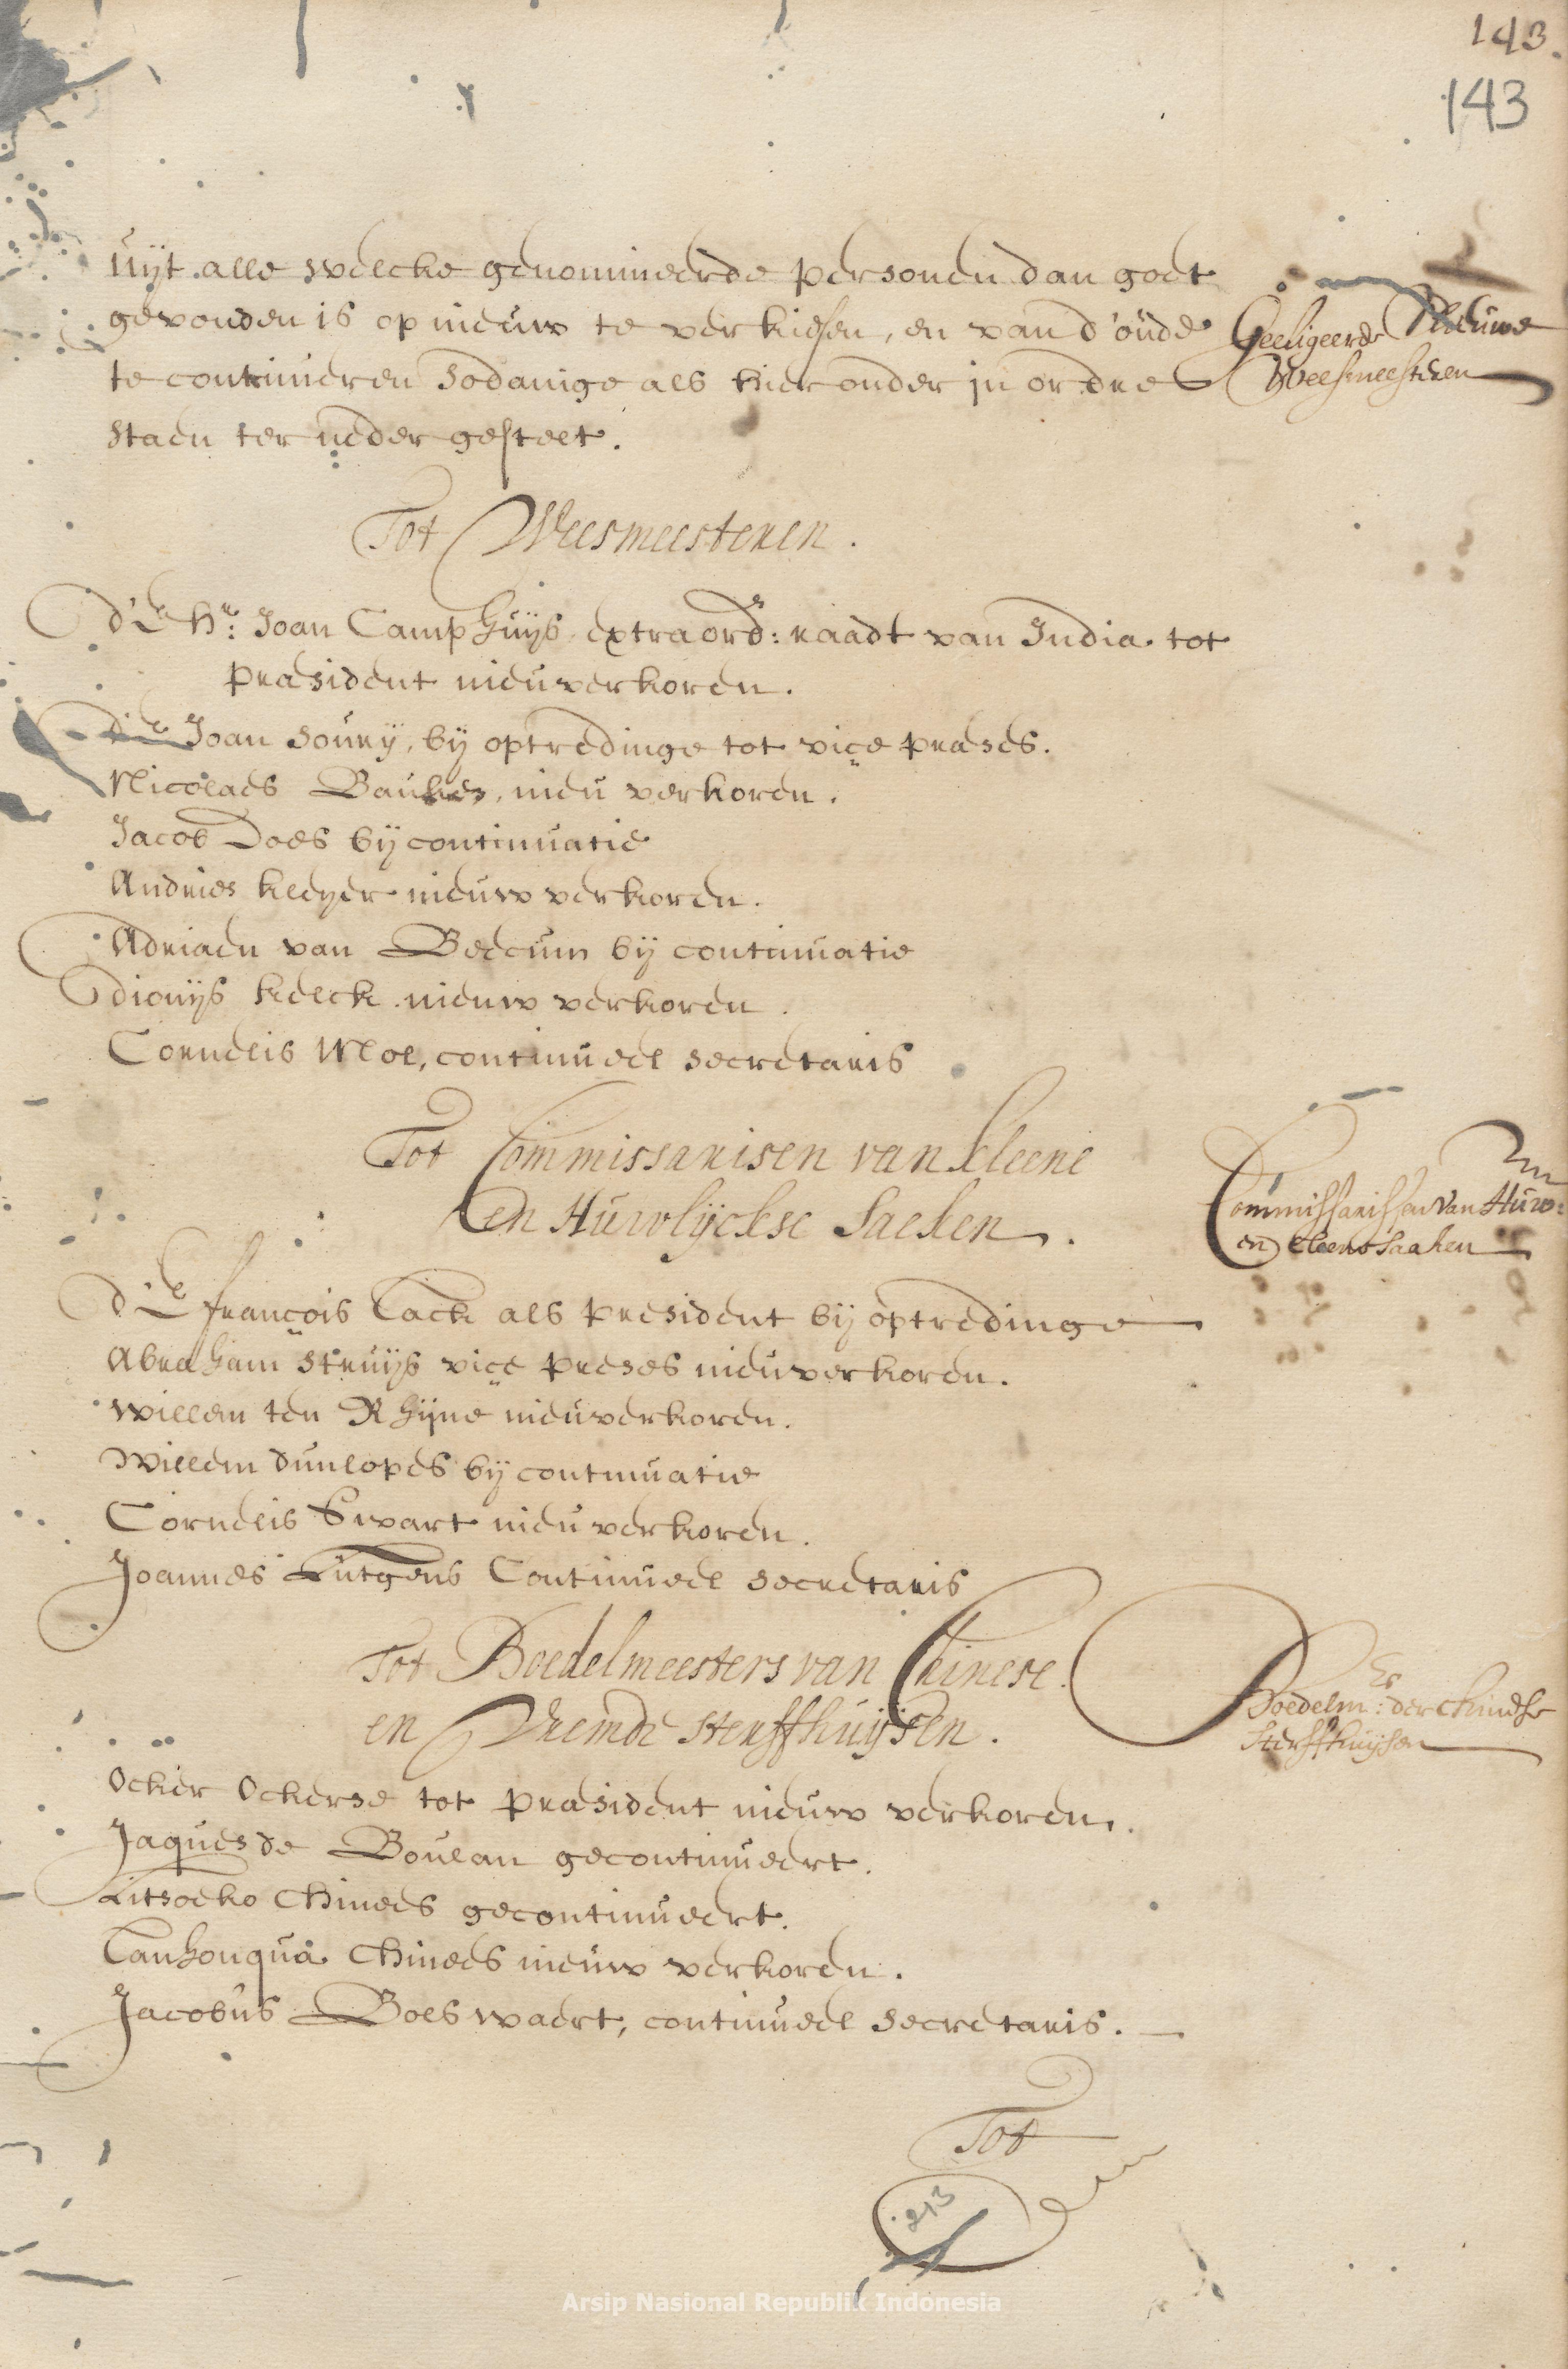 143.
143
Uÿt alle welcke genomineerde personen dan goet
gevonden is op nieuw te verkiesen, en van d'oude
te continueren sodanige als hier onder in ordre
staen ter neder gestelt.
Geeligeerde Nieuwe
Weesmeesteren
Tot Weesmeesteren.
d'E Hr: Joan Camphuÿs extraord: raadt van India tot
præsident nieu verkoren.
d'E Joan Sourÿ, bÿ optredinge tot vice præses.
Nicolaes Baukes, nieu verkoren.
Jacob Does bÿ continuatie
Andries Kleyer nieuw verkoren.
Adriaen van Beccum bÿ continuatie
dionÿs Kelck nieuw verkoren.
Cornelis Mol, continueel secretaris
Tot Commissarisen van kleene
en Huwlÿckse Saeken.
Commissarissen van Huw:
en cleene saaken
d'E françois Tack als president bÿ optredinge
Abraham Struÿs vice preses nieu verkoren.
Willem ten Rhÿne nieu verkoren.
Willem dunlopes bÿ continuatie
Cornelis Swart nieu verkoren.
Joannes Lutgens Continueel secretaris
Tot Boedelmeesters van Chinese
en Vremde sterffhuÿsen.
Boedelm:rs der chineese
sterffhuÿsen
Ocker Ockerse tot præsident nieuw verkoren.
Jaques de Boulan gecontinueert.
Litsoeko Chinees gecontinueert.
Tanhonqua Chinees nieuw verkoren.
Jacobus Boelswaert, continueel secretaris.
Tot
213
Arsip Nasional Republik Indonesia